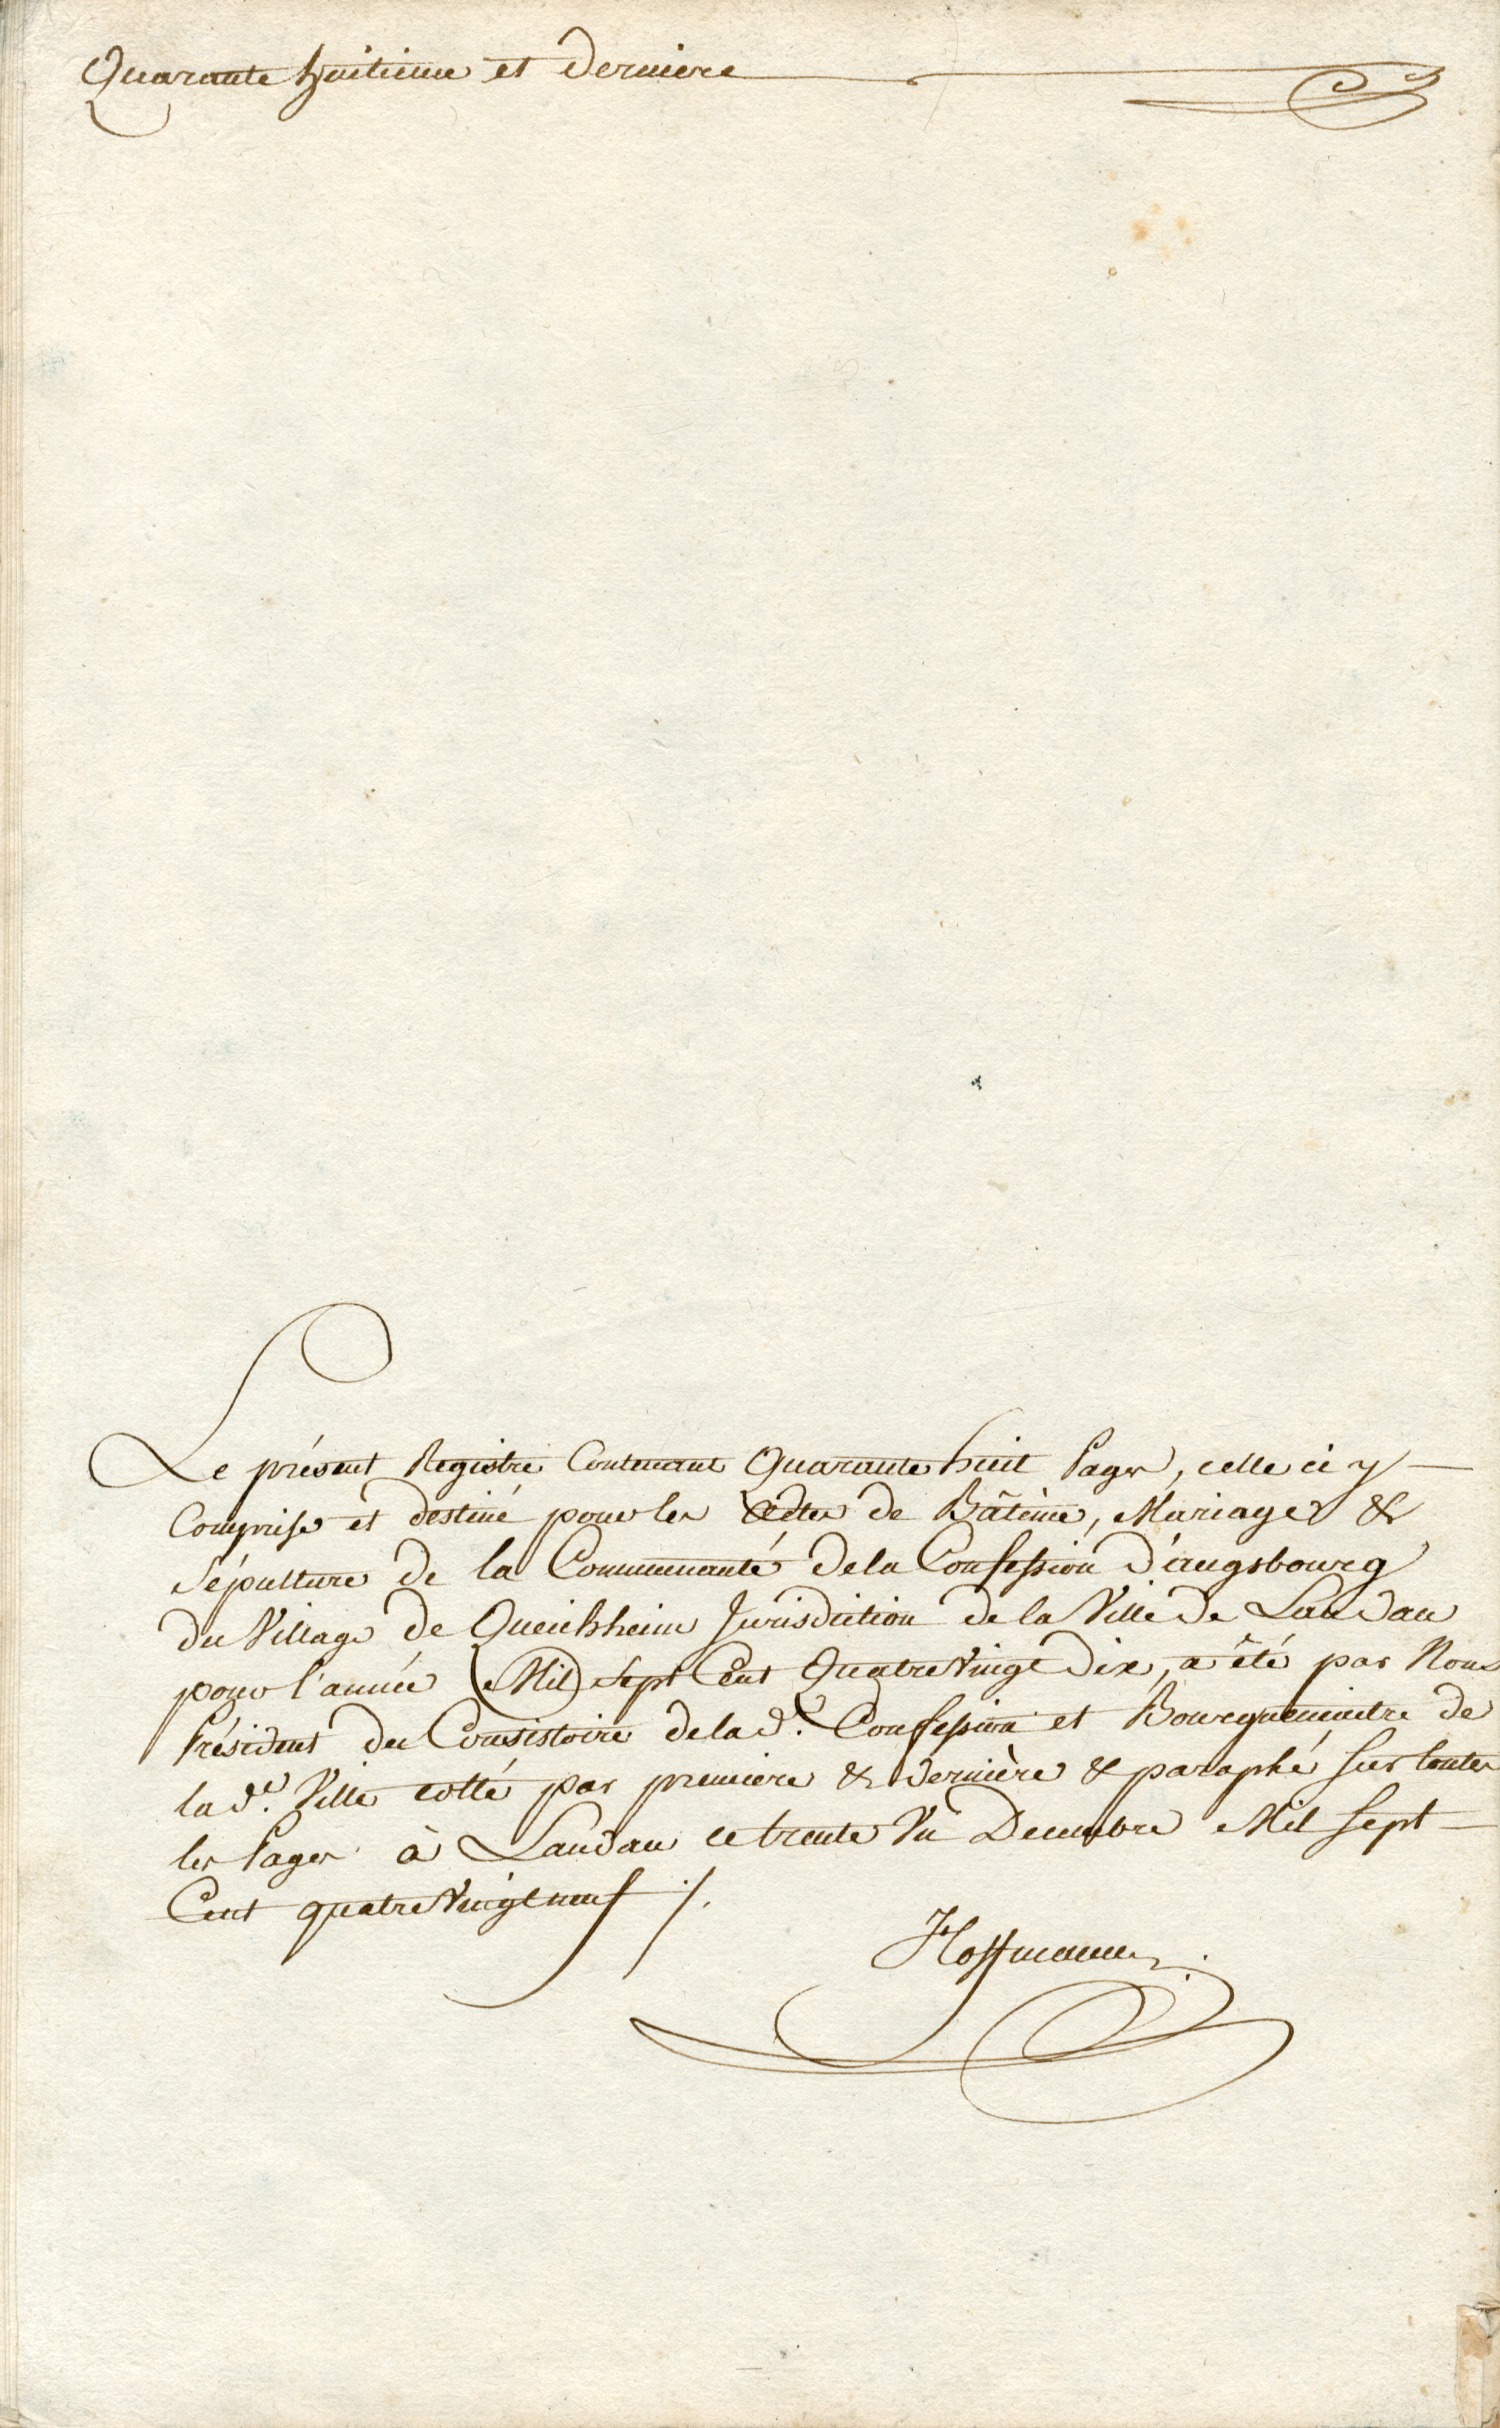 Quarante huitieme et derniere
Le présent Registre Contenant Quarante huit Pages, celle ci y
Comprise et destiné pour les Actes de Bâtême, Mariages &
Sépulture de la Communauté de la Confession d'augsbourg
du Village de Queichheim Jurisdiction de la Ville de Landau
pour l'année Mil Sept Cent Quatre Vingt Dix, a êté par Nous
Président du Consistoire de la d.e Confession et Bourguemeitre de
la d.e Ville cotté par premiere & derniére & paraphé sur toutes
les Pages à Landau ce trente Un Decembre Mil Sept
Cent quatre Vingt neuf /.
Hoffmann